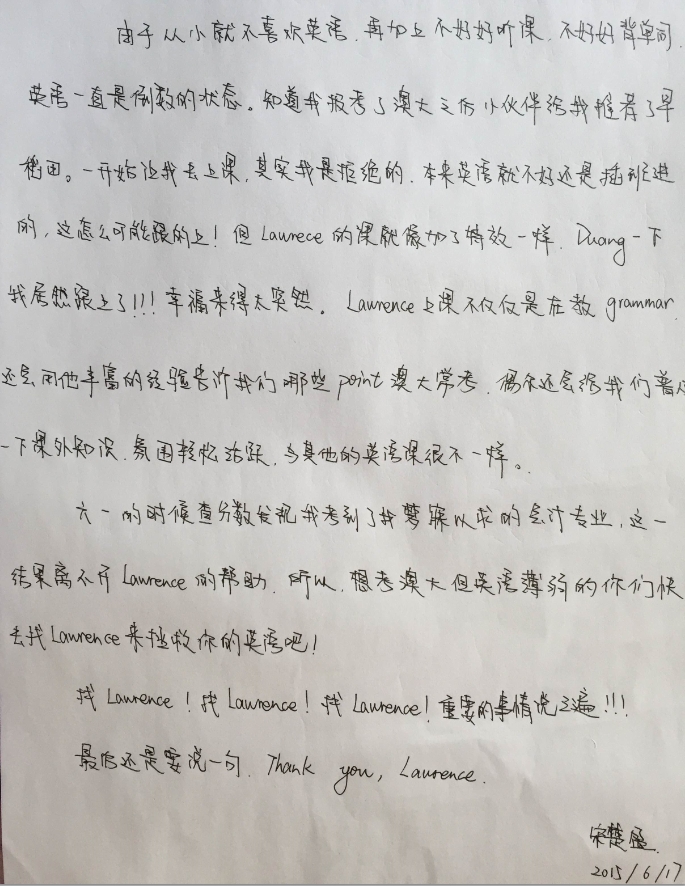 由于从小就不喜欢英语，再加上不好好听课，不好好背单词，
英语一直是倒数的状态。知道我报考了澳大之后小伙伴给我推荐了早
稻田。一开始让我去上课，其实我是拒绝的，本来英语就不好还是插班进
的，这怎么可能跟的上！但Lawrece的课就像加了特效一样，Duang一下
我居然跟上了!!!幸福来得太突然。Lawrence上课不仅仅是在教grammar，
还会用他丰富的经验告诉我们哪些point澳大常考，偶尔还会给我们普及
一下课外知识，氛围轻松活跃，与其他的英语课很不一样。
六一的时候查分数发现我考到了我梦寐以求的会计专业，这一
结果离不开Lawrence的帮助，所以，想考澳大但英语薄弱的你们快
去找Lawrence来拯救你的英语吧！
找Lawrence！找Lawrence！找Lawrence！重要的事情说三遍!!!
最后还是要说一句，Thank you, Lawrence.
宋楚
2015/6/17